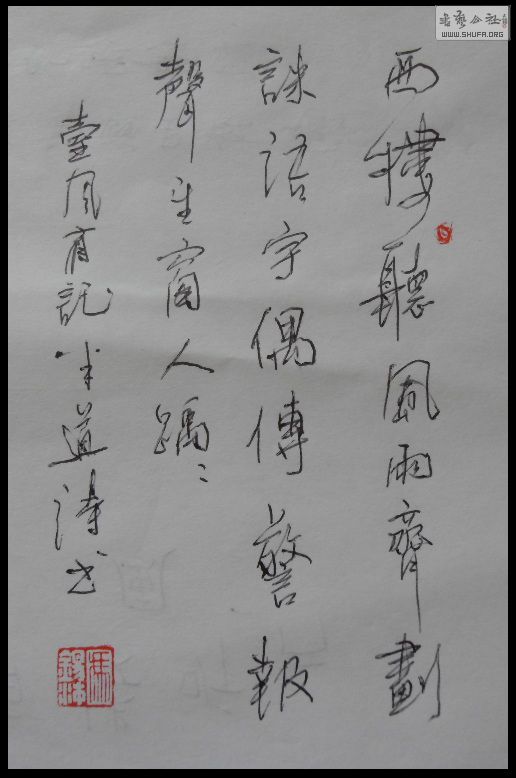 西樓聽風雨齊劃
誅語字偶傳警報
聲窗人踽〻
臺風有記半道詩书
书艺公社
WWW.SHUFA.ORG